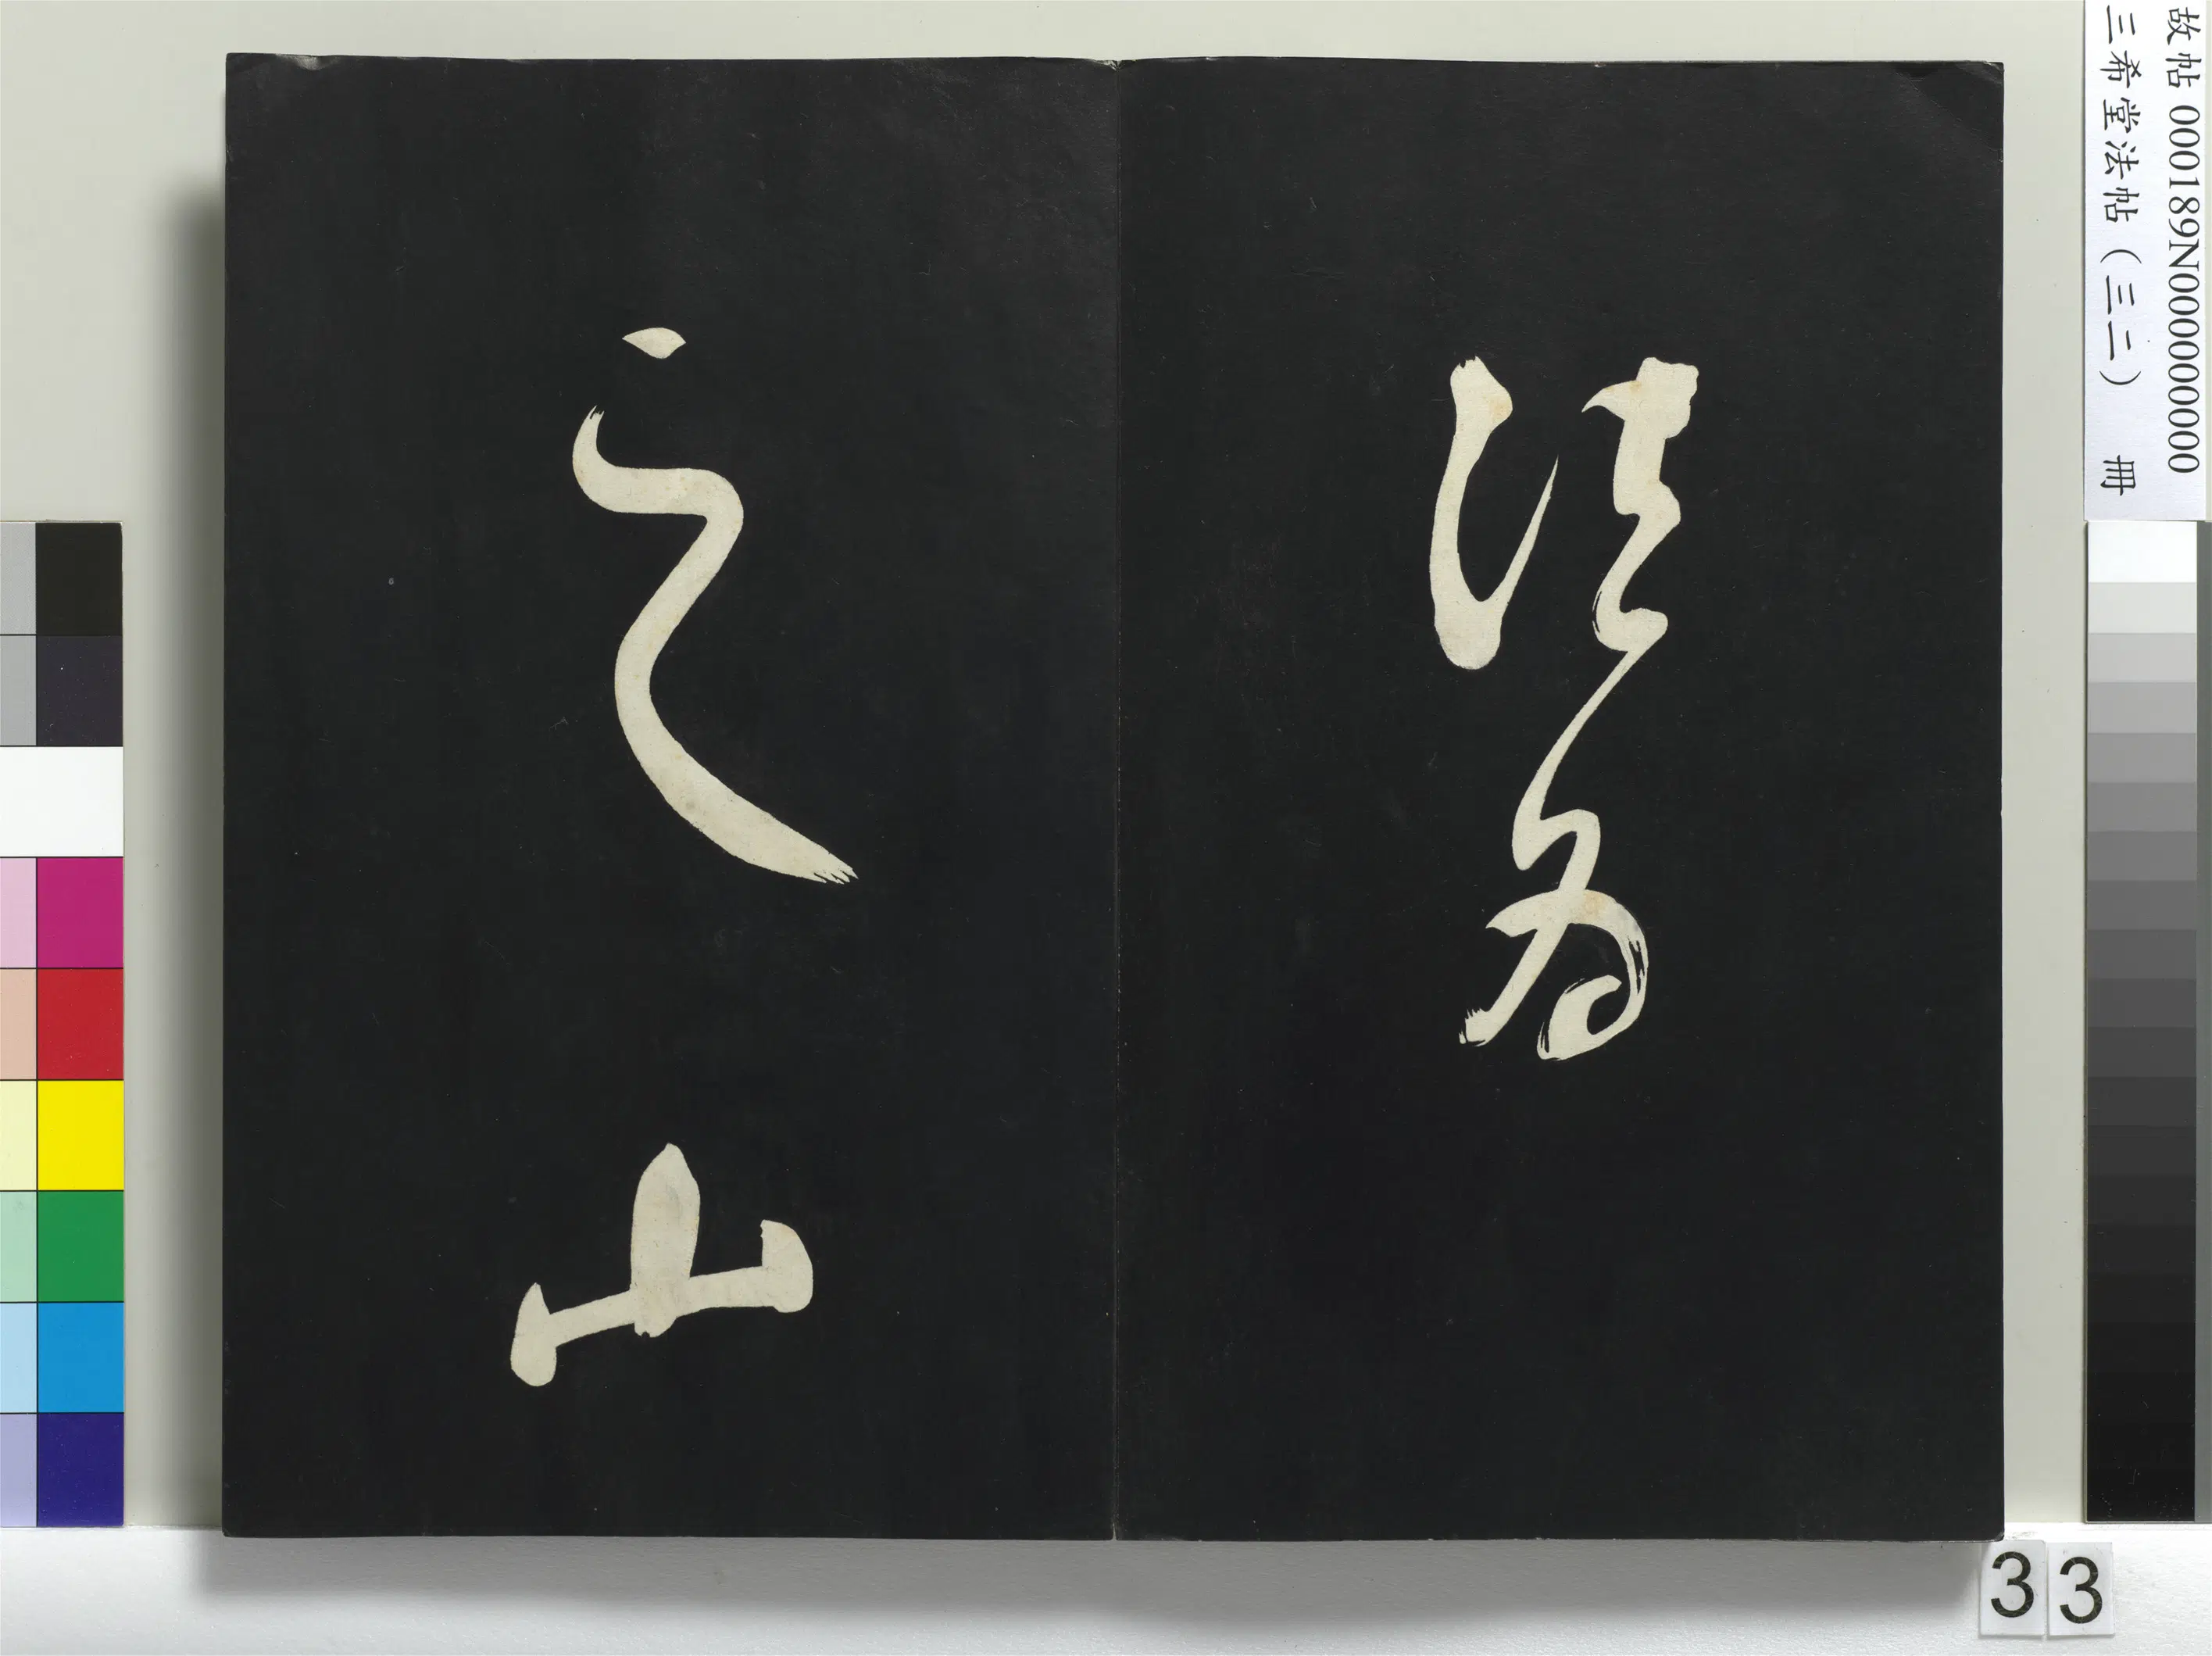 為
之山
故帖 000189N000000000
三希堂法帖(三二) 冊
33